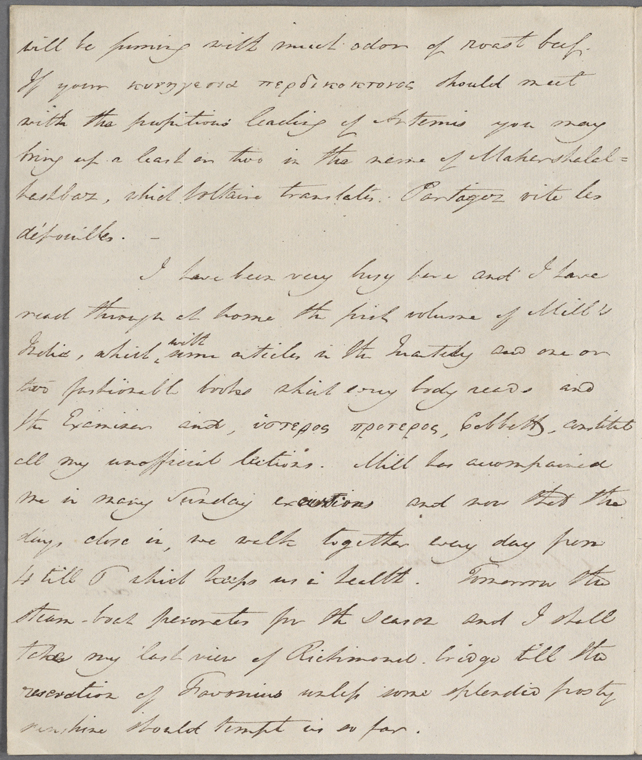 will be fuming with much odor of roast beef.
If your κυνηγεσια περδικοκτονος should meet
with the propitious leading of Artemis you may
bring up a leash or two in the name of Mahershalal=
hashbaz, which Voltaire translates. Partagez vite les
dépouilles. —
I have been very busy here and I have
read through at home the first volume of Mill's
India, which, with some articles in the Quarterly and one or
two fashionable books which every body reads and
the Examiner and, ὑστερος προτερος, Cobbett, constitute
all my unofficial lections. Mill has accompanied
me in many Sunday excursions and now that the
days close in, we walk together every day from
4 till 6 which keeps us in health. Tomorrow the
steam-boat perorates for the season and I shall
take my last view of Richmond bridge till the
reseration of Favonius unless some splendid frosty
sunshine should tempt us so far.